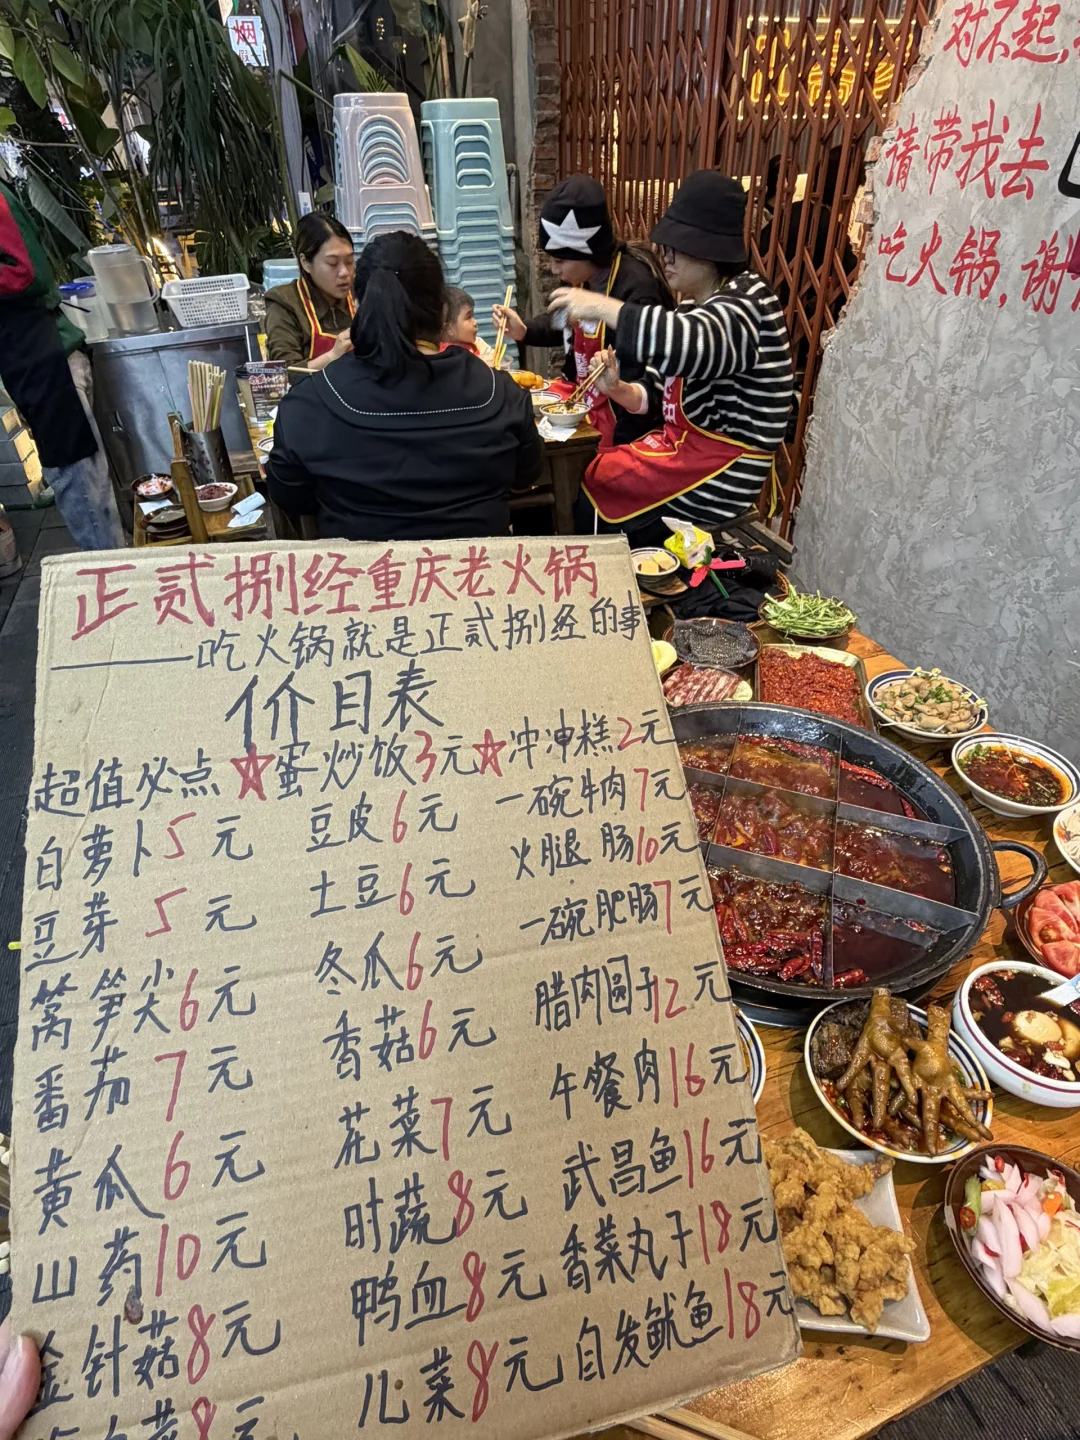 烟
对不起,
请带我去
吃火锅,谢
正贰捌经重庆老火锅
——吃火锅就是正贰捌经的事
价目表
超值必点 ☆蛋炒饭3元☆冲冲糕2元
白萝卜5元 豆皮6元 一碗牛肉7元
豆芽 5元 土豆6元 火腿肠10元
莴笋尖6元 冬瓜6元 一碗肥肠7元
番茄 7元 香菇6元 腊肉圆子12元
黄瓜 6元 花菜7元 午餐肉16元
山药10元 时蔬8元 武昌鱼16元
金针菇8元 鸭血8元 香菜丸子18元
8元 儿菜8元 自发鱿鱼18元